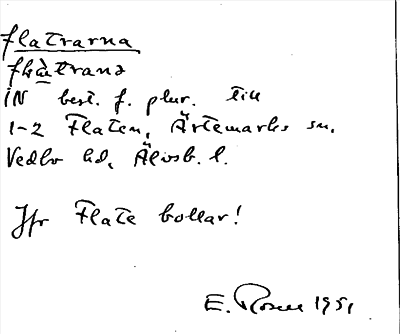 flatrarna
IN best. f. plur. till
1-2 Flaten, Ärtemarks sn,
Vedbo hd, Älvsb. l.
Jfr Flate bollar!
E. Rosell 1951